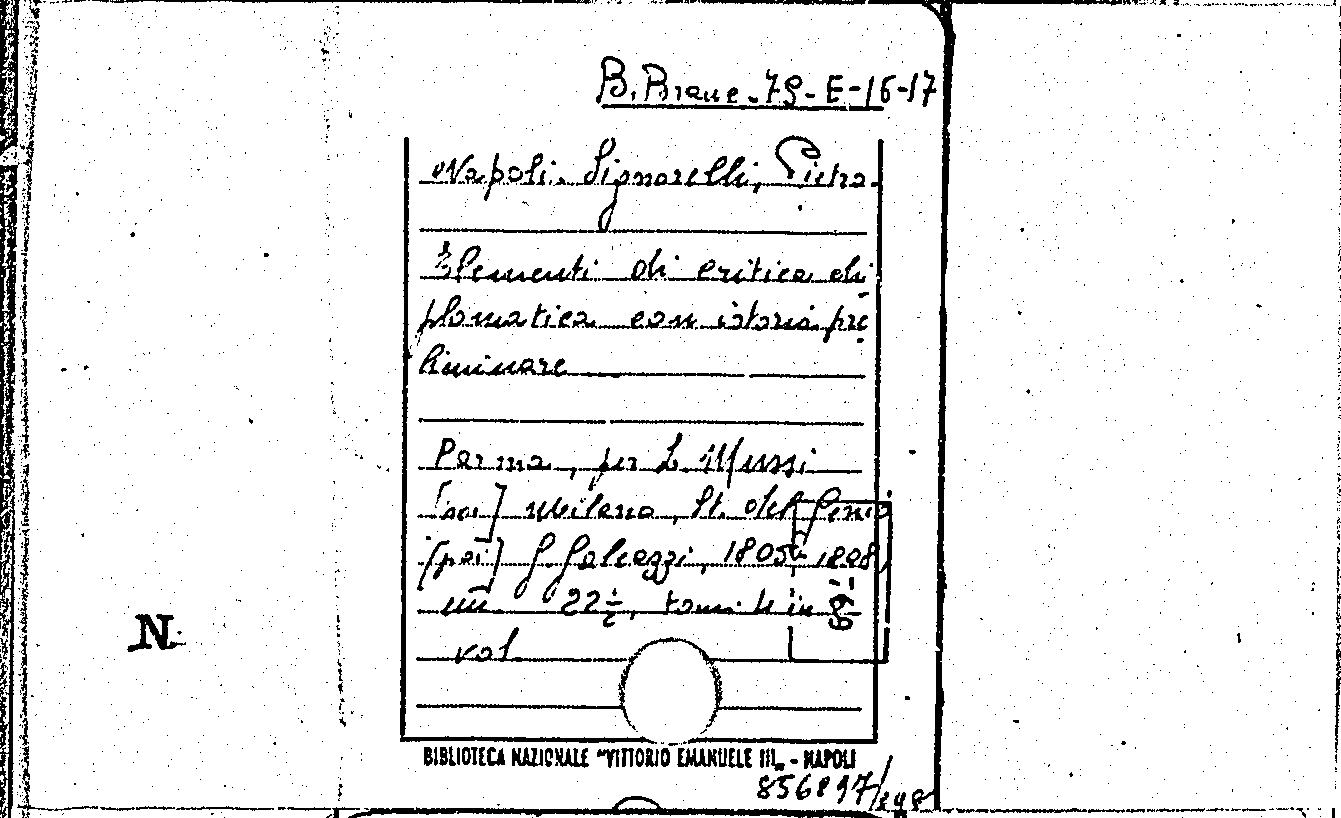 B. Branc. 79-E-16-17
Napoli. Signorelli, Pietro.
Elementi di critica di
plomatica con istoria pre
liminare
Parma, per L. Mussi
[poi] Milano, St. del Genio
[poi] G. Galeazzi, 1805-1808
cm. 22½, tomi 4 in
vol.
N.
BIBLIOTECA NAZIONALE "VITTORIO EMANUELE III„ - NAPOLI
856897/